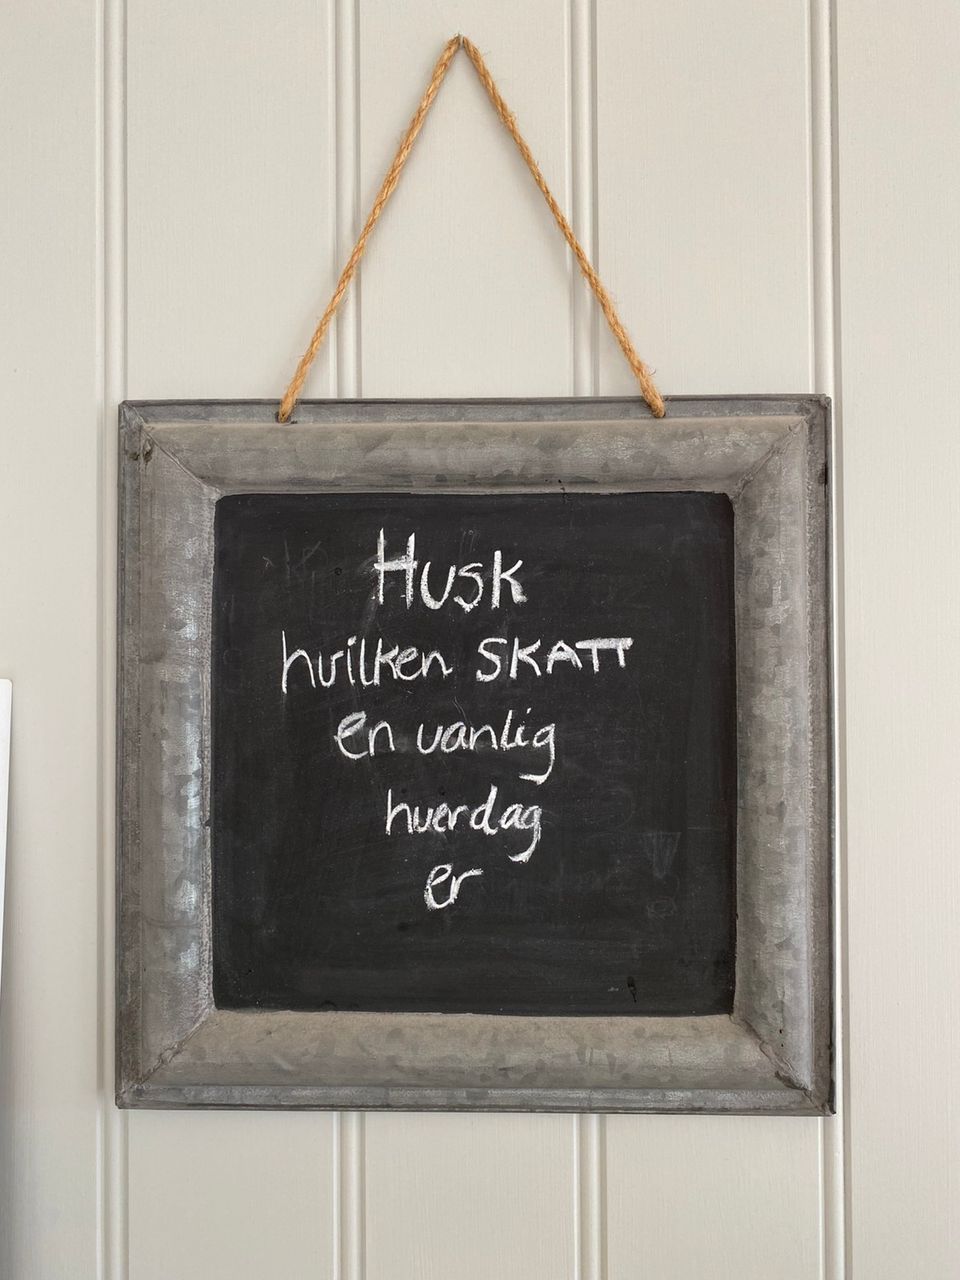 Husk
hvilken SKATT
en vanlig
hverdag
er